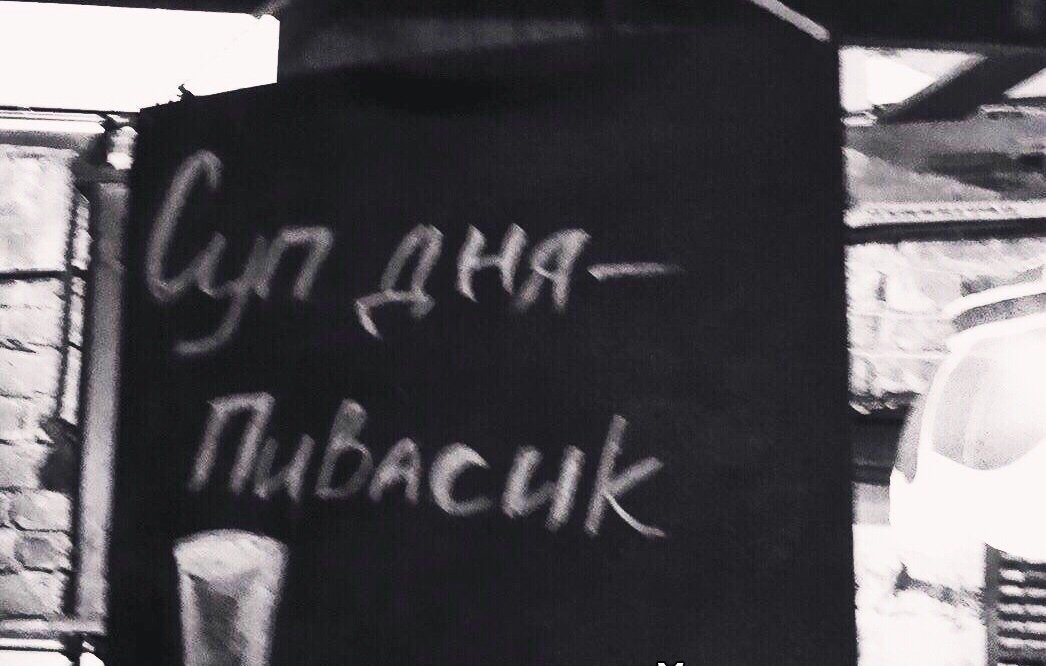 Суп дня—
Пивасик